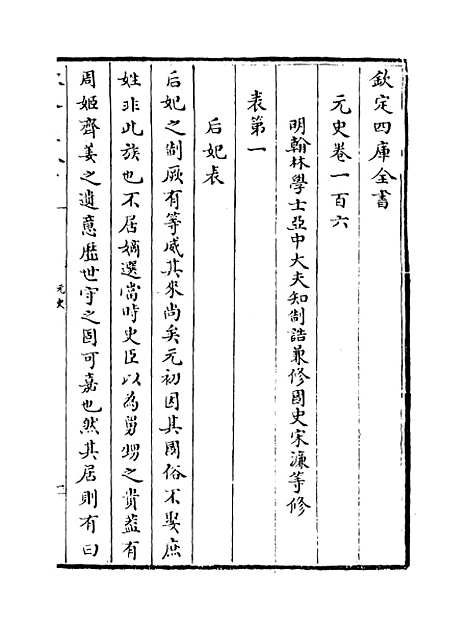 欽定四庫全書
元史卷一百六
明翰林學士亞中大夫知制誥兼修國史宋濂等修
表第一
后妃表
后妃之制厥有等威其來尚矣元初因其國俗不娶庶
姓非此族也不居嫡選當時史臣以為舅甥之貴葢有
周姬齊姜之遺意歴世守之固可嘉也然其居則有曰
元史